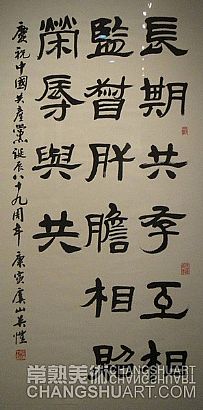 長期共存互相
監督肝膽相照
榮辱與共
慶祝中國共產黨誕辰八十九周年 庚寅虞山吳愷
常熟美術 CHANGSHUART
CHANGSHUART